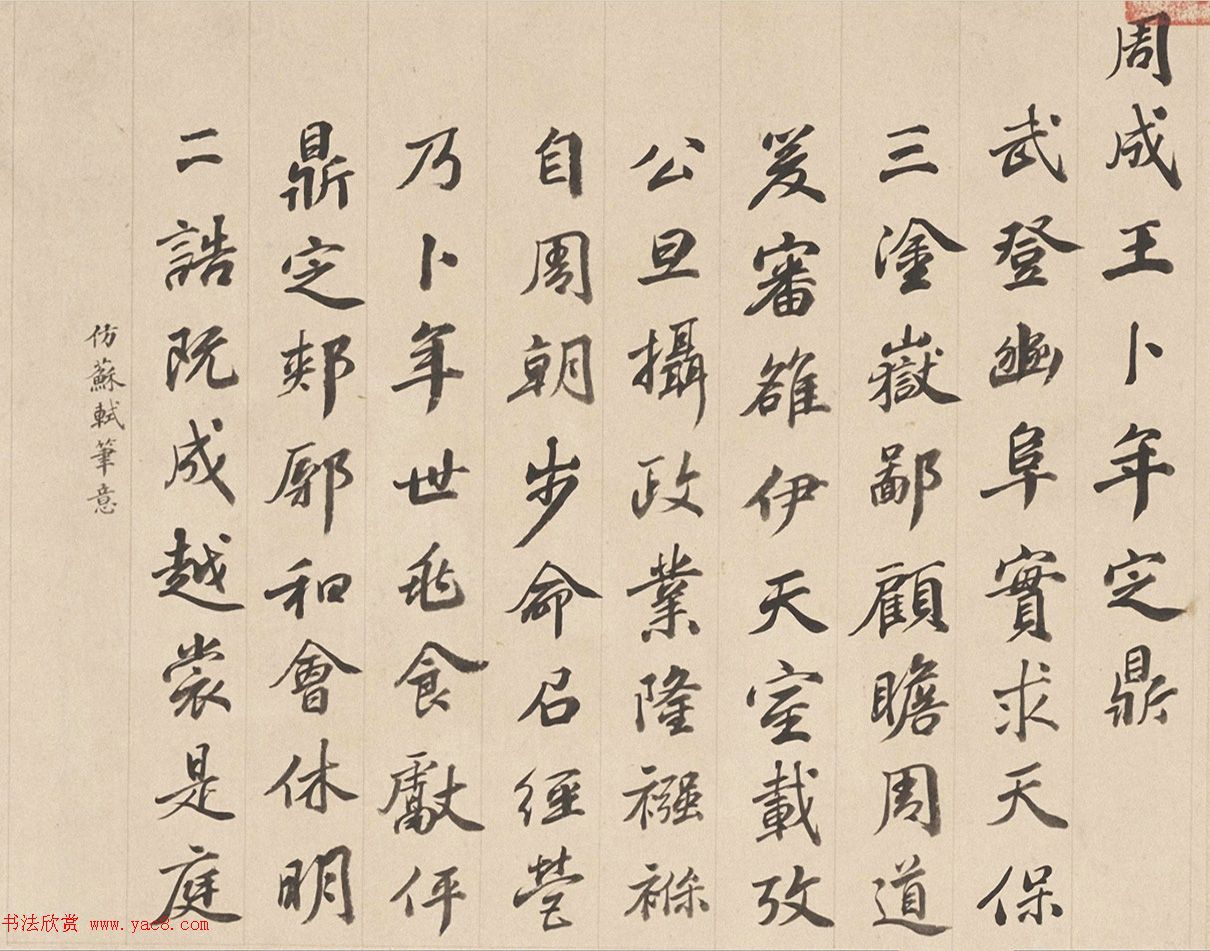 周成王卜年定鼎
武登豳阜實求天保
三塗嶽鄙顧瞻周道
爰審雒伊天室載攷
公旦攝政業隆襁褓
自周朝步命召經營
乃卜年世龜食獻伻
鼎定郟鄏和會休明
二誥既成越裳是庭
仿蘇軾筆意
书法欣赏 www.yac8.com